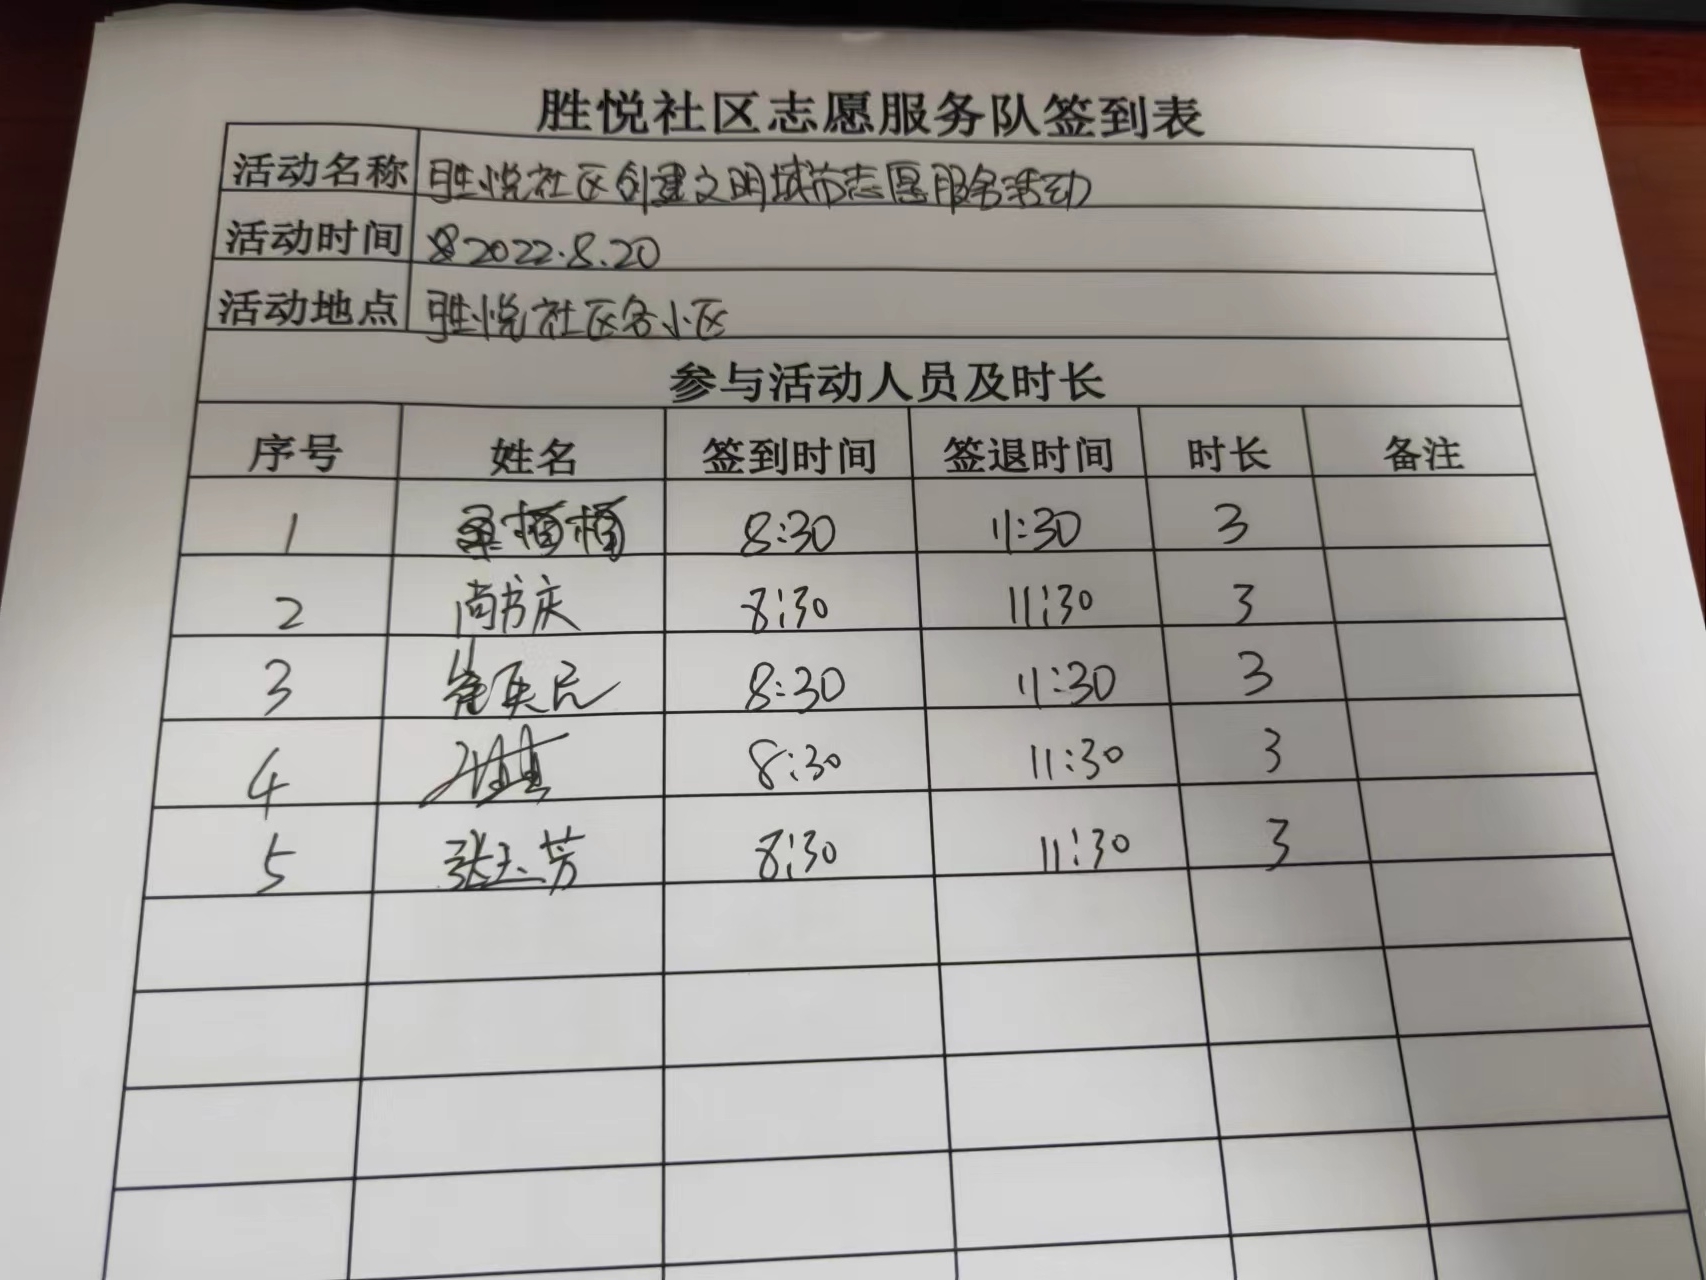 胜悦社区志愿服务队签到表
活动名称 胜悦社区创建文明城市志愿服务活动
活动时间 2022.8.20
活动地点 胜悦社区各小区
参与活动人员及时长
序号 姓名 签到时间 签退时间 时长 备注
1 8:30 11:30 3
2 尚书庆 8:30 11:30 3
3 8:30 11:30 3
4 8:30 11:30 3
5 张玉芳 8:30 11:30 3